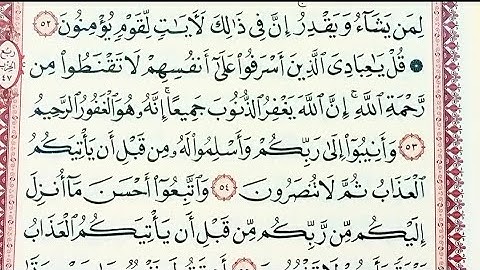 لِمَن يَشَآءُ وَيَقْدِرُ إِنَّ فِى ذَٰلِكَ لَءَايَٰتٍ لِّقَوْمٍ يُؤْمِنُونَ ٥٢
۞ قُلْ يَٰعِبَادِىَ ٱلَّذِينَ أَسْرَفُوا۟ عَلَىٰٓ أَنفُسِهِمْ لَا تَقْنَطُوا۟ مِن
رَّحْمَةِ ٱللَّهِ إِنَّ ٱللَّهَ يَغْفِرُ ٱلذُّنُوبَ جَمِيعًا إِنَّهُۥ هُوَ ٱلْغَفُورُ ٱلرَّحِيمُ
٥٣ وَأَنِيبُوٓا۟ إِلَىٰ رَبِّكُمْ وَأَسْلِمُوا۟ لَهُۥ مِن قَبْلِ أَن يَأْتِيَكُمُ
ٱلْعَذَابُ ثُمَّ لَا تُنصَرُونَ ٥٤ وَٱتَّبِعُوٓا۟ أَحْسَنَ مَآ أُنزِلَ
إِلَيْكُم مِّن رَّبِّكُم مِّن قَبْلِ أَن يَأْتِيَكُمُ ٱلْعَذَابُ